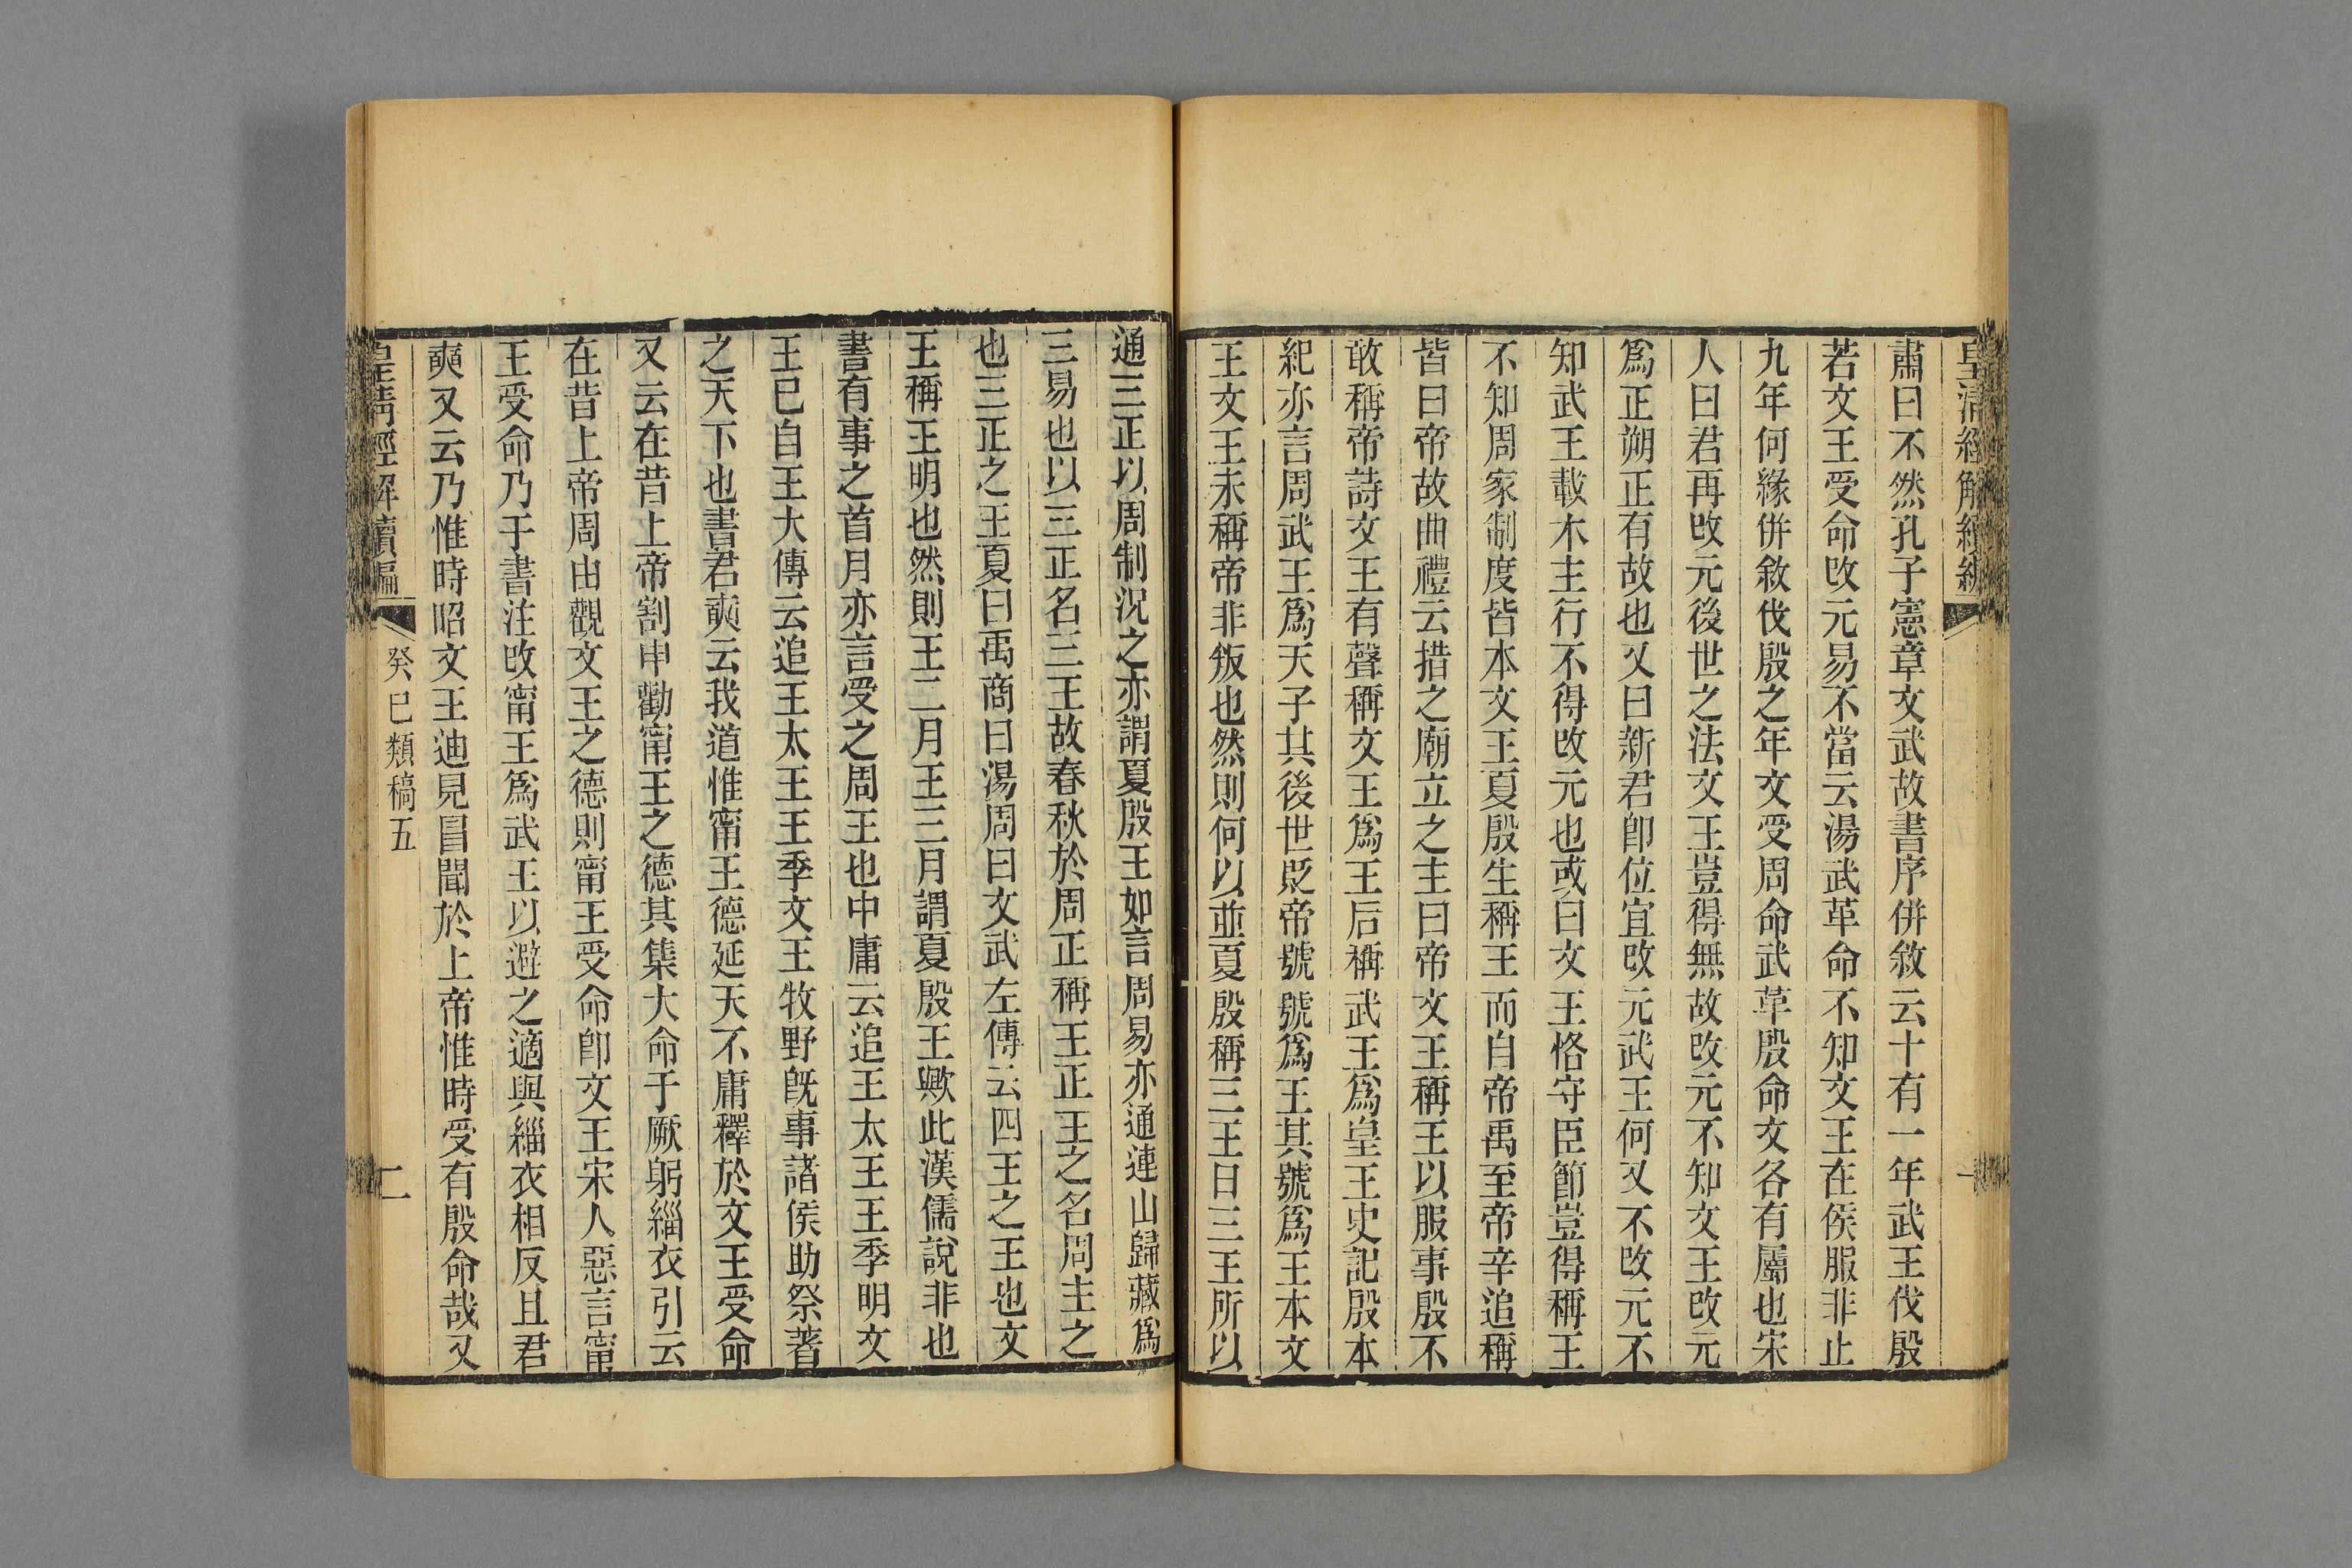 皇清經解續編
肅曰不然孔子憲章文武故書序併敘云十有一年武王伐殷
若文王受命改元易不當云湯武革命不知文王在侯服非止
九年何緣併敘伐殷之年文受周命武革殷命文各有屬也宋
人曰君再改元後世之法文王豈得無故改元不知文王改元
爲正朔正有故也又曰新君卽位宜改元武王何又不改元不
知武王載木主行不得改元也或曰文王恪守臣節豈得稱王
不知周家制度皆本文王夏殷生稱王而自帝禹至帝辛追稱
皆曰帝故曲禮云措之廟立之主曰帝文王稱王以服事殷不
敢稱帝詩文王有聲稱文王爲王后稱武王爲皇王史記殷本
紀亦言周武王爲天子其後世貶帝號號爲王其號爲王本文
王文王未稱帝非叛也然則何以並夏殷稱三王曰三王所以
通三正以周制況之亦謂夏殷王如言周易亦通連山歸藏爲
三易也以三正名三王故春秋於周正稱王正王之名周主之
也三正之王夏曰禹商曰湯周曰文武左傳云四王之王也文
王稱王明也然則王二月王三月謂夏殷王歟此漢儒說非也
書有事之首月亦言受之周王也中庸云追王太王王季明文
王已自王大傳云追王太王王季文王牧野旣事諸侯助祭著
之天下也書君奭云我道惟甯王德延天不庸釋於文王受命
又云在昔上帝割申勸甯王之德其集大命于厥躬緇衣引云
在昔上帝周田觀文王之德則甯王受命卽文王宋人惡言甯
王受命乃于書注改甯王爲武王以避之適與緇衣相反且君
奭又云乃惟時昭文王迪見冒聞於上帝惟時受有殷命哉又
皇清經解續編
癸巳類稿五
二